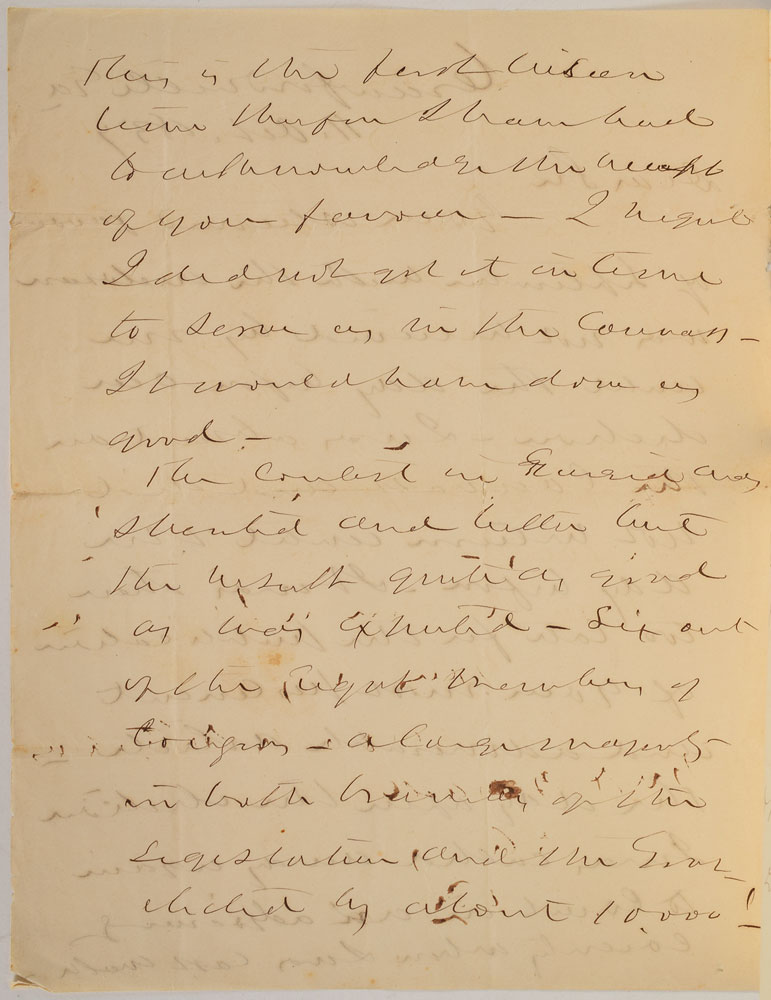 This is the first leisure
time therfor I have had
to acknowledge the receipt
of your favour — I regret
I did not get it in time
to serve us in the Canvass —
It would have done us
good —
The Contest in Georgia was
spirited and bitter but
the result quite as good
as was expected — Six out
of the eight members of
Congress — a large majority
in both branches of the
Legislature, and the Gov
elected by about 10000!